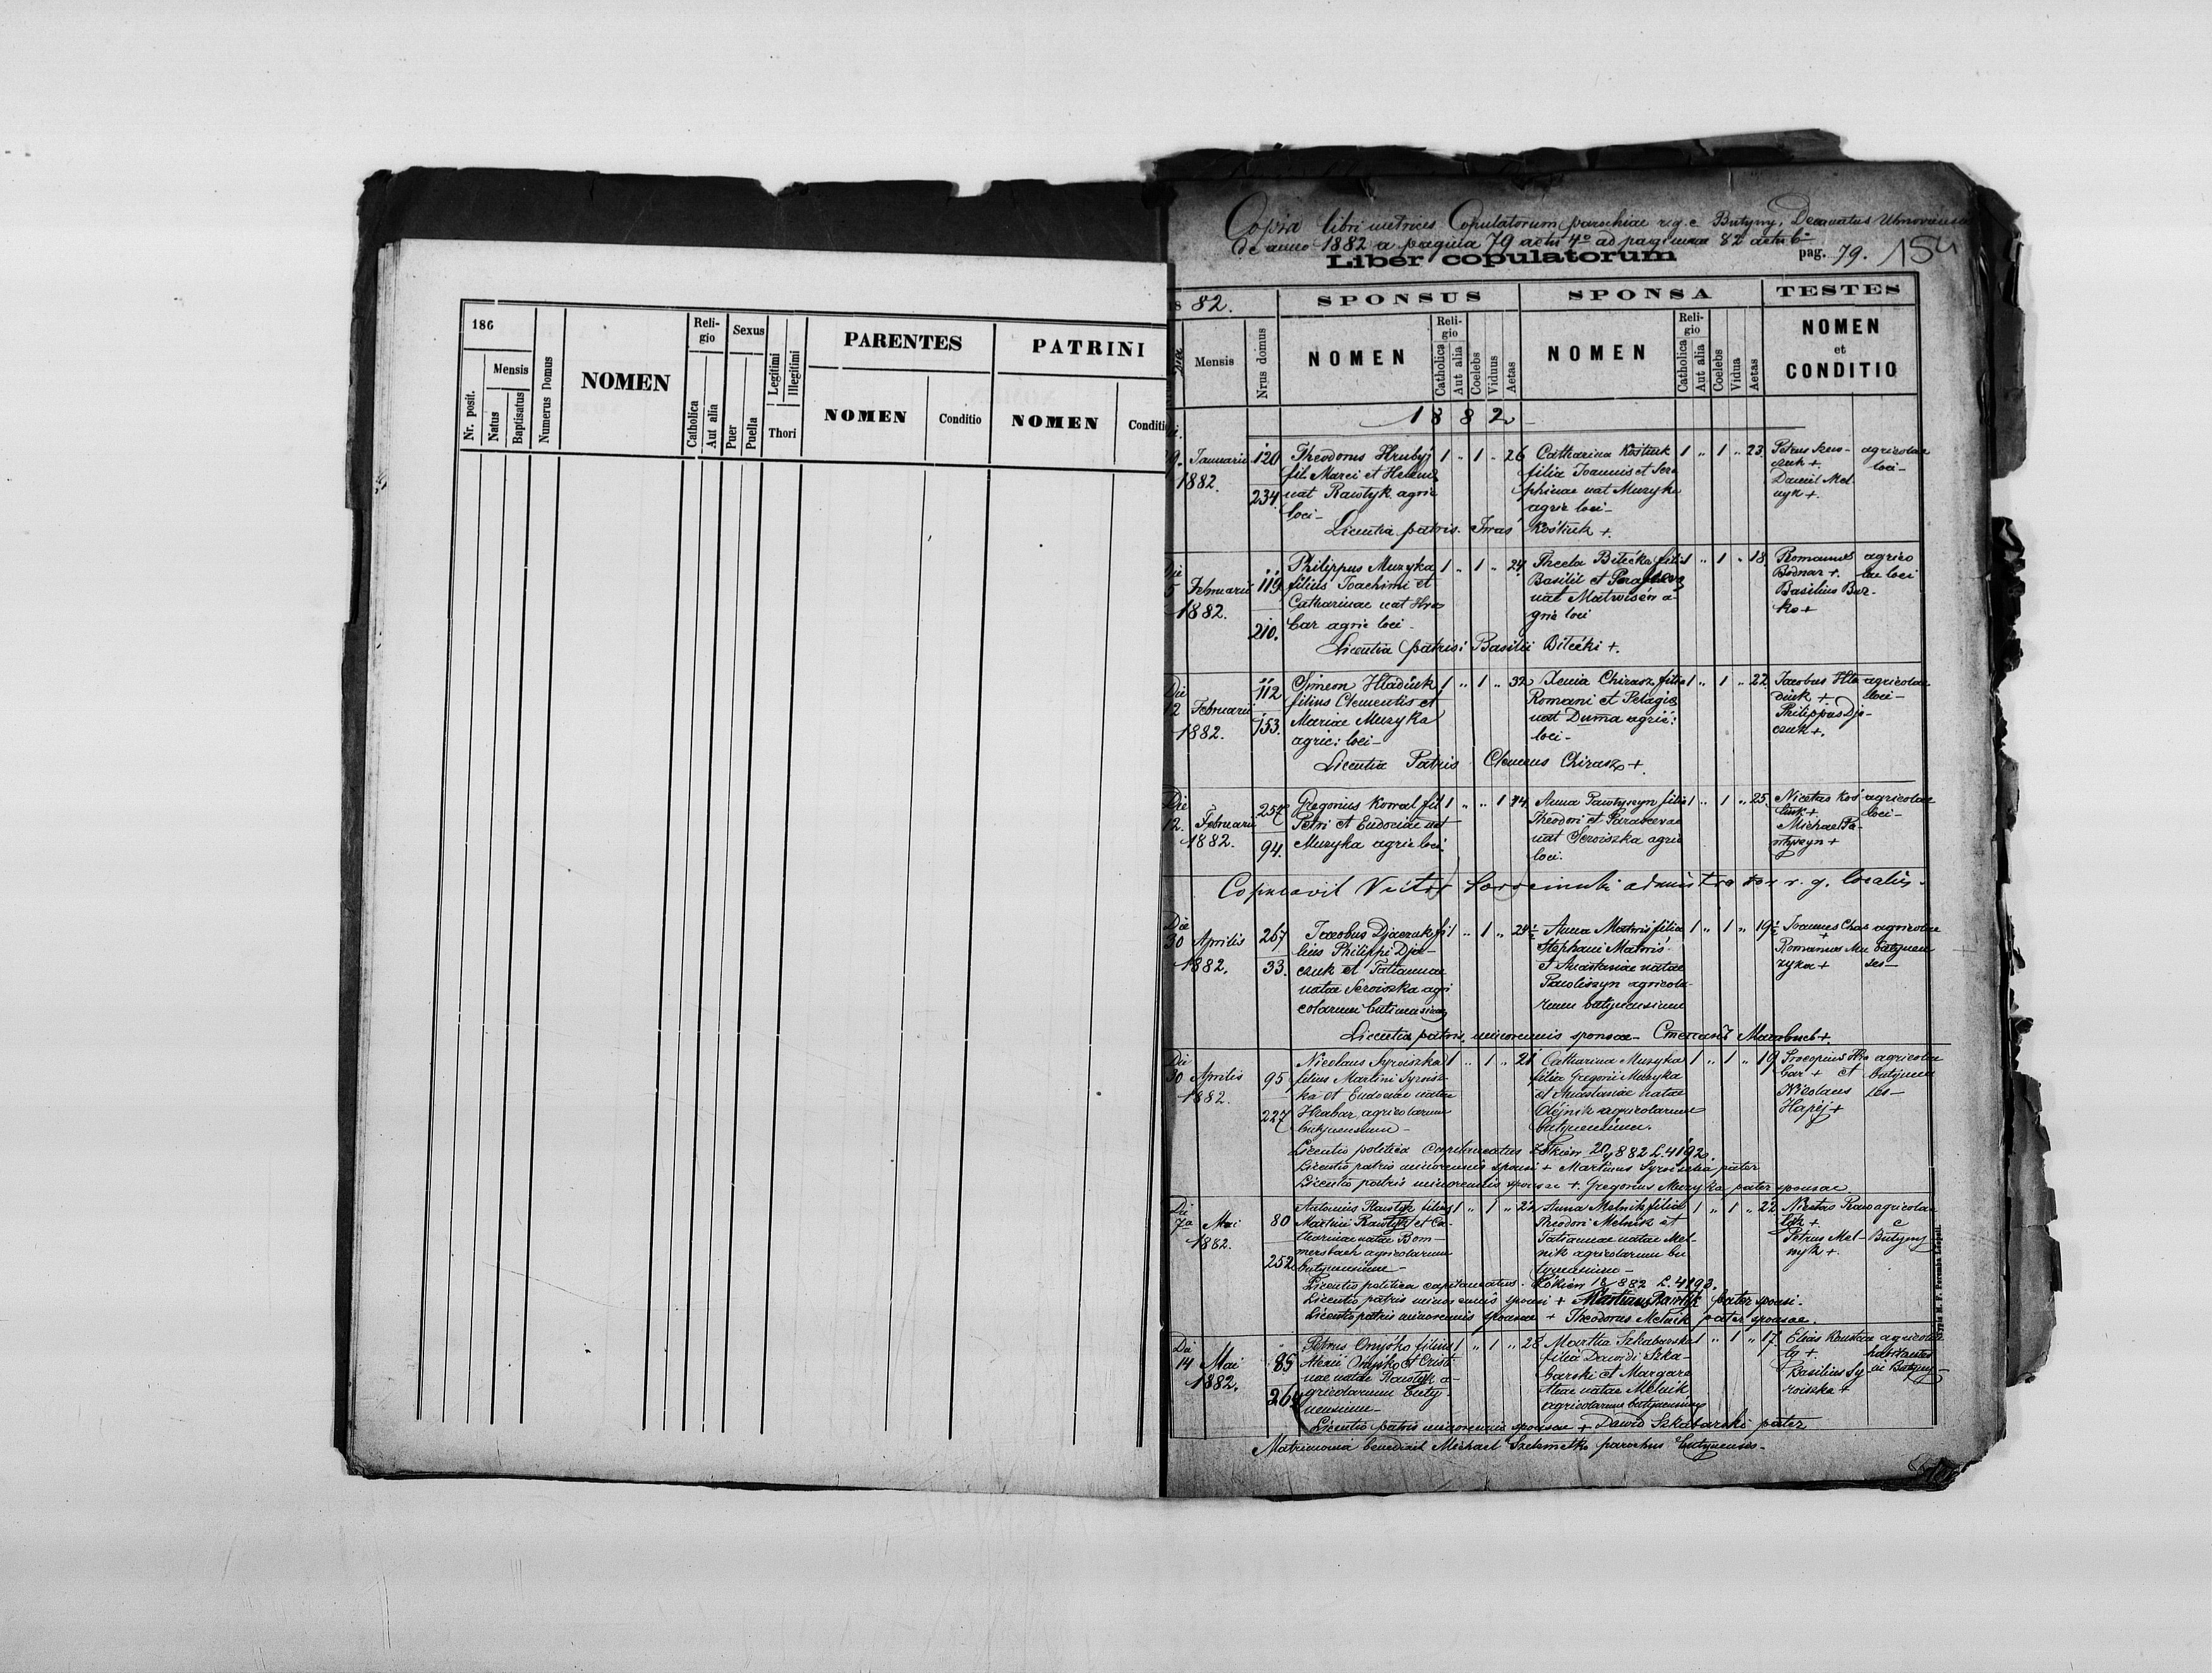 186
Nr. posit.
Mensis
Natus
Baptisatus
Numerus Domus
NOMEN
Reli-
gio
Catholica
Aut alia
Sexus
Puer
Puella
Legitimi
Illegitimi
Thori
PARENTES
NOMEN
Conditio
PATRINI
NOMEN
Conditi
Copia libri metrices Copulatorum parochiae r.g.c. Butyny, Decanatus
de anno 1882 a pagina 79 actu 4º ad paginam 82 actu 6
Liber copulatorum
pag. 79. 154
82.
Mensis
Nrus domus
SPONSUS
NOMEN
Reli-
gio
Catholica
Aut alia
Coelebs
Viduus
Aetas
SPONSA
NOMEN
Reli-
gio
Catholica
Aut alia
Coelebs
Vidua
Aetas
TESTES
NOMEN
et
CONDITIO
1882
9. Januarii
1882.
120
234.
Theodorus Hrubyj
fil. Marci et Helenae
nat Rawlyk agric
loci-
1 " 1 " 26
Catharina Kostiuk
filia Joannis et Sera
phinae nat Muzyka
agric loci-
1 " 1 " 23.
Petrus
czuk +
Daniel Mel
nyk +.
agricolae
loci-
Licentia patris. Iwas Kostiuk +.
Die
5 Februarii
1882.
119
210.
Philippus Muzyka
filius Joachimi et
Catharinae nat Hra
bar agric loci-
1 " 1 " 24
Thecla Bilecka filia
Basilii et
nat
gric loci
1 " 1 " 18
Romanus
Bodnar +.
Basilius Bur-
ko +
agrico
lae loci
Licentia patris: Basilii Bilecki +.
Die
12 Februarii
1882.
112
153.
Simeon Hladiuk
filius Clementis et
Mariae Muzyka
agric: loci-
1 " 1 " 32
Xenia Chirasz filia
Romani et Pelagiae
nat Duma agric:
loci-
1 " 1 " 22
Jacobus Hla
diuk +
Philippus Dja-
czuk +.
agricolae
loci-
Licentia Patris Clemens Chirasz +.
Die
12. Februarii
1882.
257
94.
Gregorius Kowal fil
Petri et Eudociae nat
Muzyka agric loci.
1 " " 1 44
Anna Pawlyszyn filia
Theodori et Parascevae
nat Seroiszka agric
loci.
1 " 1 " 25.
Nicetas Kos
tiuk +
Michael Pa-
wlyszyn +
agricolae
loci-
Copulavit Victor administrator r. g. localis.
Die
30 Aprilis
1882.
267
33.
Jacobus Djaczuk fi
lius Philippi Dja-
czuk et Tatiannae
natae Seroiszka agri
colarum
1 " 1 " 24½
Anna Matwis filia
Stephani Matwis
et Anastasiae natae
Pawliszyn agricola-
rum butynensium
1 " 1 " 19½
Joannes Chas
+
Romanus Mu
zyka +
agricolae
butynen
ses-
Licentia patris minorennis sponsae-
Die
30 Aprilis
1882.
95
227
Nicolaus Syroiszka
filius Martini Syroisz-
ka et Eudociae natae
Hrabar agricolarum
butynensium-
1 " 1 " 21
Catharina Muzyka
filia Gregorii Muzyka
et Anastasiae natae
Olejnik agricolarum
butynensium.
1 " 1 " 19
Procopius Hra
bar + et
Nicolaus
Hapij +
agricolae
butynen
ses-
Licentia politica capitaneatus Żołkiew 20/ 882 L. 4192.
Licentia patris minorennis sponsi + Martinus Syroiszka pater
Licentia patris minorennis sponsae +. Gregorius Muzyka pater sponsae
Die
7a Mai
1882.
80
252
Antonius Rawlyk filius
Martini Rawlyk et Ca-
tharinae natae Bom-
mersbach agricolarum
butynensium-
1 " 1 " 22
Anna Melnik filia
Theodori Melnik et
Tatiannae natae Mel-
nik agricolarum bu
tynensium-
1 " 1 " 22
Nicetas Raw
lyk +
Petrus Mel-
nyk +.
agricolae
e
Butyny
Licentia politica capitaneatus. Żołkiew 18/ 882 L. 4193.
Licentia patris minorennis sponsi + Martinus Rawlyk pater sponsi.
Licentia patris minorennis sponsae + Theodorus Melnik pater sponsae.
Die
14 Mai
1882.
85
264
Petrus Onyśko filius
Alexii Onyśko et Cristi
nae natae Rawlyk a-
gricolarum buty
nensium-
1 " 1 " 28
Martha Szkabarska
filia Dawidi Szka-
barski et Margare
thae natae Melnik
agricolarum butynensium
1 " 1 " 17
Elias
ty +.
Basilius Sy
roiszka +
agricolae
habitantes
in Butyny-
Licentia patris minorennis sponsae + Dawid Szkabarski pater
Matrimonia benedixit Michael Szelemetko parochus butynensis-